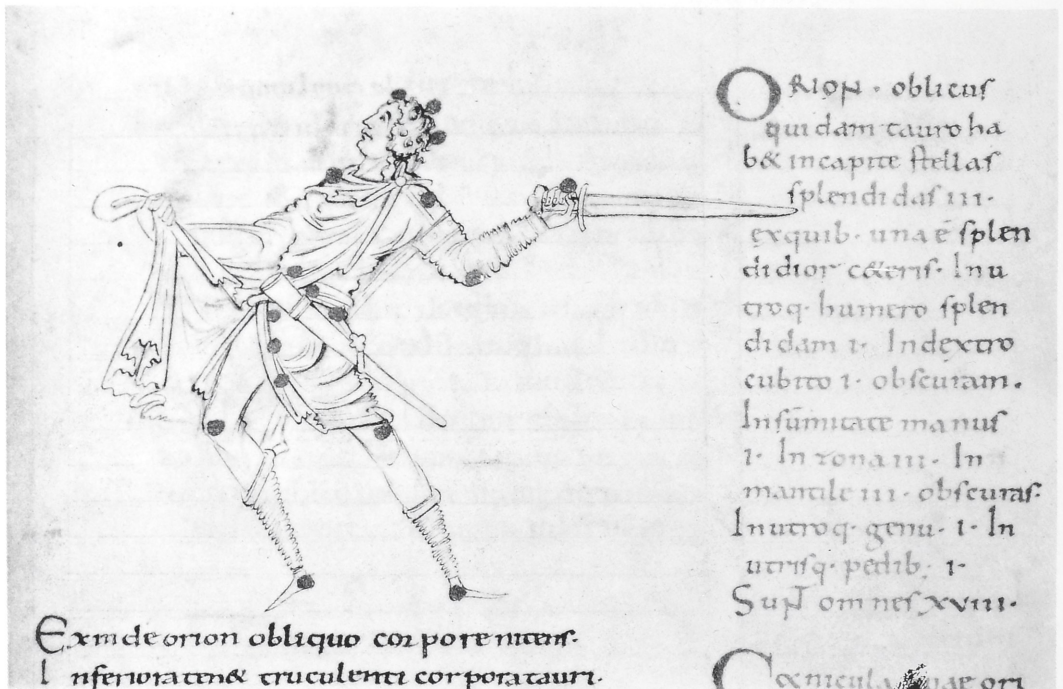 ORION · oblicus
quidam tauro ha
b& incapite stellas
splendidas iii ·
exquib · una ē splen
didior c&eris · Inu
troq · humero splen
didam i · Indextro
cubito i · obscuram .
Insūmitate manus
i · In zona iii · In
mantile iii · obscuras ·
Inutroq · genu · i · In
utrisq · pedib · i ·
Suɴ̄ omnes xviii ·
Exinde orion obliquo corpore nitens ·
Inferiora ten& truculenti corpora tauri ·